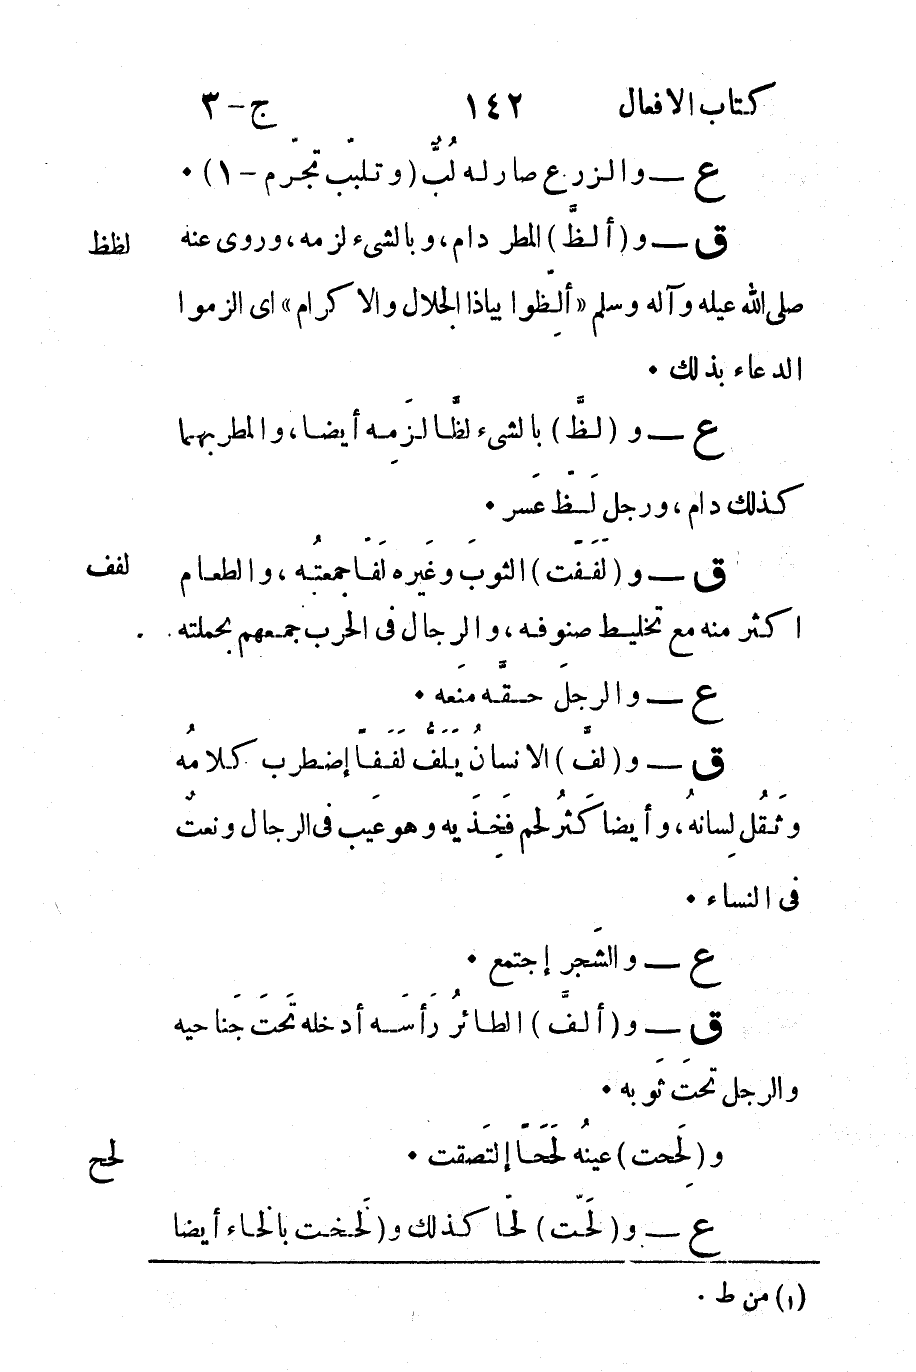 كتاب الافعال ١٤٢ ج – ٣
ع — والزرع صارله لُبٌّ (وتلبّب تجرّم – ١) ٠
ق — و (ألظَّ) المطر دام، وبالشىء لزمه، وروى عنه
لظظ
صلى الله عيله وآله وسلم «ألِظّوا بياذا الجلال والاكرام» اى الزموا
الدعاء بذلك ٠
ع — و (لظَّ) بالشىء لظًّا لَزِمه أيضا، والمطر بهما
كذلك دام، ورجل لَظّ عَسر ٠
ق — و (لَفَفَت) الثوبَ وغَيره لَفّا جمعتُه، والطعام
لفف
اكثر منه مع تخليط صنوفه، والرجال فى الحرب جمعهم بحملته ٠
ع — والرجلَ حقَّه منَعه ٠
ق — و (لفَّ) الانسانُ يُلَفُّ لَفَفاً إضطرب كلامُه
وثَقُل لِسانهُ، وأيضا كَثُر لحم فَخِذَيه وهو عَيب فى الرجال ونعتٌ
فى النساء ٠
ع — والشَجر إجتمع ٠
ق — و (ألفَّ) الطائرُ رَأسَه أدخله تَحتَ جَناحيه
والرجل تحتَ ثَوبه ٠
و (لَحِحت) عينهُ لَحَحاً إلتَصقت ٠
لحح
ع — و (لَحّت) لحّا كذلك و (لَخخت بالخاء أيضا
(١) من ط ٠